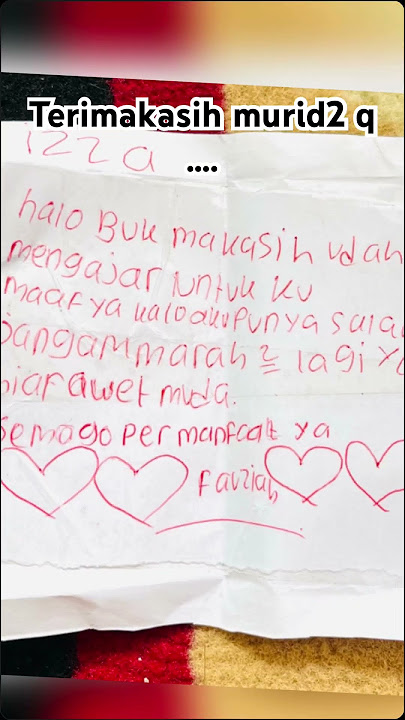 Terimakasih murid2 q
....
izza
halo Buk makasih udah
mengajar untuk ku
maaf ya kalo aku punya salah
jangam marah 2 lagi ya
biar awet muda.
Semago per manfaat ya
fauziah